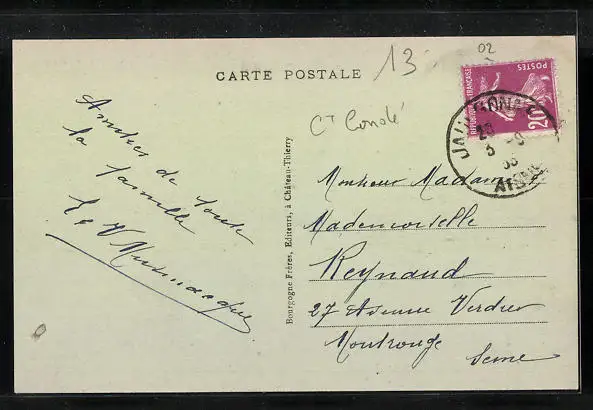 CARTE POSTALE
13
02
Ct Condé
Amitiés de toute
la famille
Bourgogne Frères, Editeurs, à Château-Thierry
POSTES
REPUBLIQUE FRANÇAISE
20c
AISNE
Monsieur Madame
Mademoiselle
Reynaud
27 Avenue Verdier
Montrouge
Seine